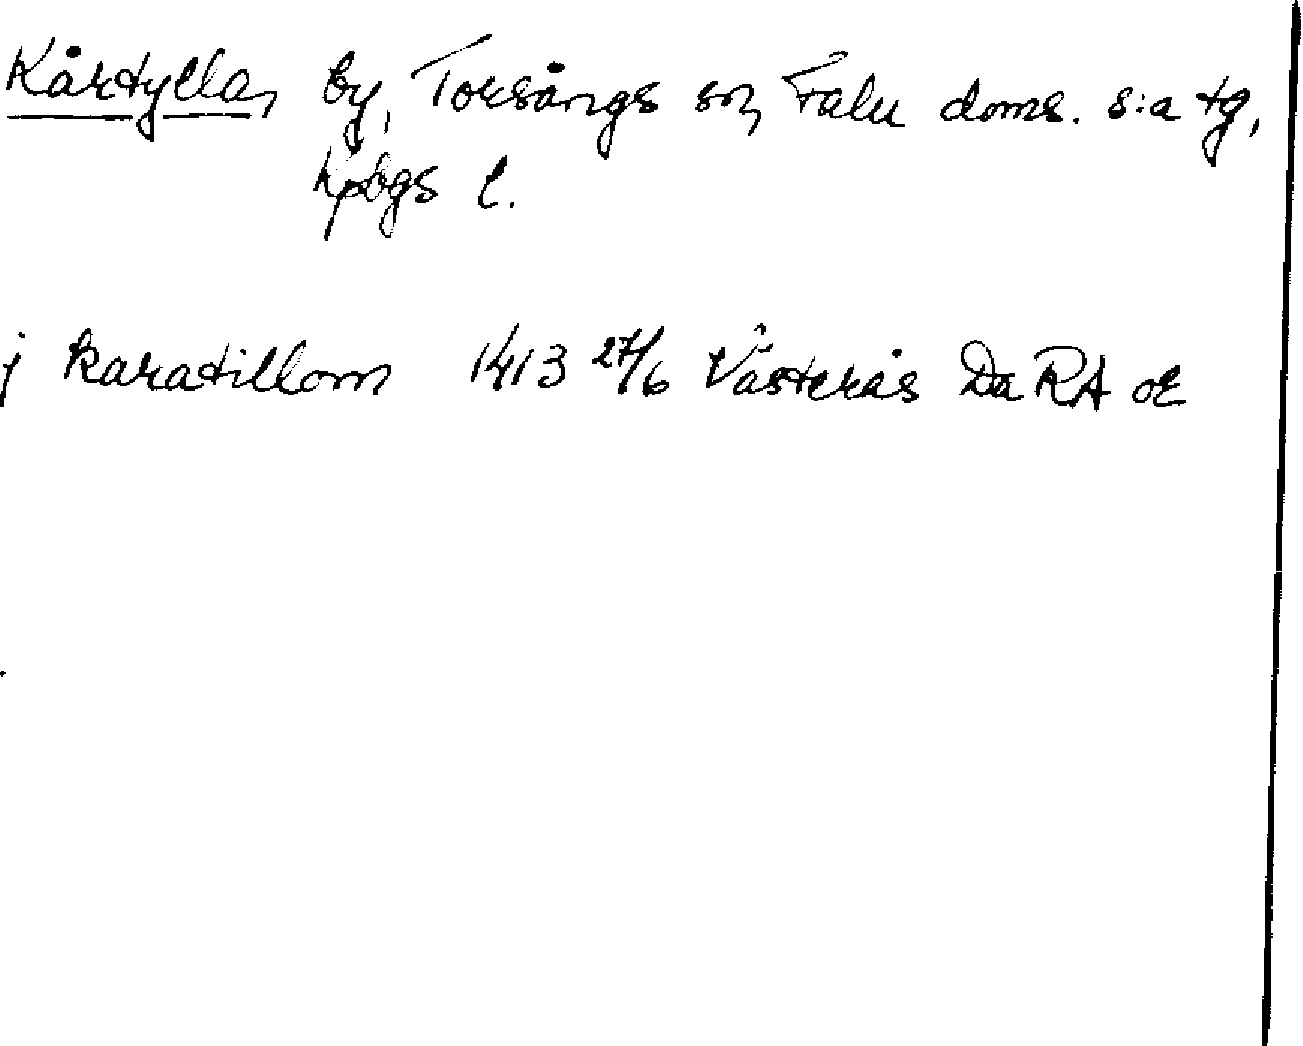 Kårtylla, by, Torsångs sn, Falu doms. s:a tg,
Kpbgs l.
j karatillom 1413 27/6 Västerås Da RA or